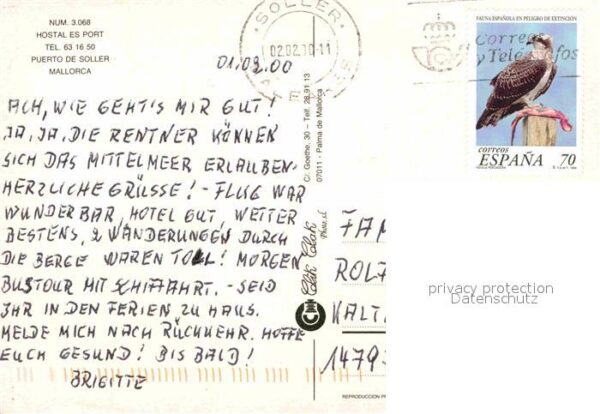 NUM. 3.068
HOSTAL ES PORT
TEL. 63 16 50
PUERTO DE SOLLER
MALLORCA
SOLLER
02.02.
01.02.00
ACH, WIE GEHT'S MIR GUT!
JA, JA, DIE RENTNER KÖNNEN
SICH DAS MITTELMEER ERLAUBEN-
HERZLICHE GRÜSSE! - FLUG WAR
WUNDERBAR, HOTEL GUT, WETTER
BESTENS, 2 WANDERUNGEN DURCH
DIE BERGE WAREN TOLL! MORGEN
BUSTOUR MIT SCHIFFAHRT. - SEID
IHR IN DEN FERIEN ZU HAUS.
MELDE MICH NACH RÜCKKEHR. HOFFE
EUCH GESUND! BIS BALD!
BRIGITTE
C/. Goethe, 30 - Telf. 28 91 13
07011 - Palma de Mallorca
Clik Clak
Photo, s.l.
REPRODUCCION PRO
FAUNA ESPAÑOLA EN PELIGRO DE EXTINCIÓN
Correos
y Telégrafos
correos
ESPAÑA 70
FAM
ROLF
KALT
1479
privacy protection
Datenschutz